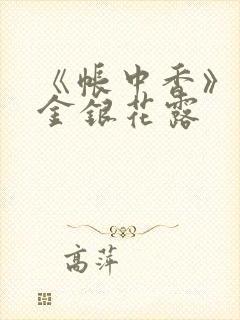 《帐中香》
金银花露
高萍